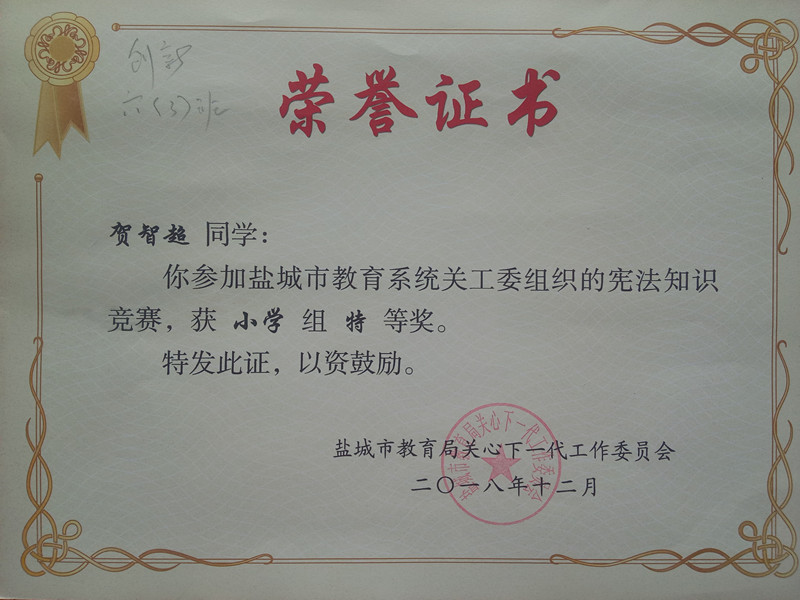 创新
六(3)班
荣誉证书
贺智超 同学:
你参加盐城市教育系统关工委组织的宪法知识
竞赛，获 小学 组 特 等奖。
特发此证，以资鼓励。
盐城市教育局关心下一代工作委员会
二〇一八年十二月
盐城市教育局关心下一代工作委员会